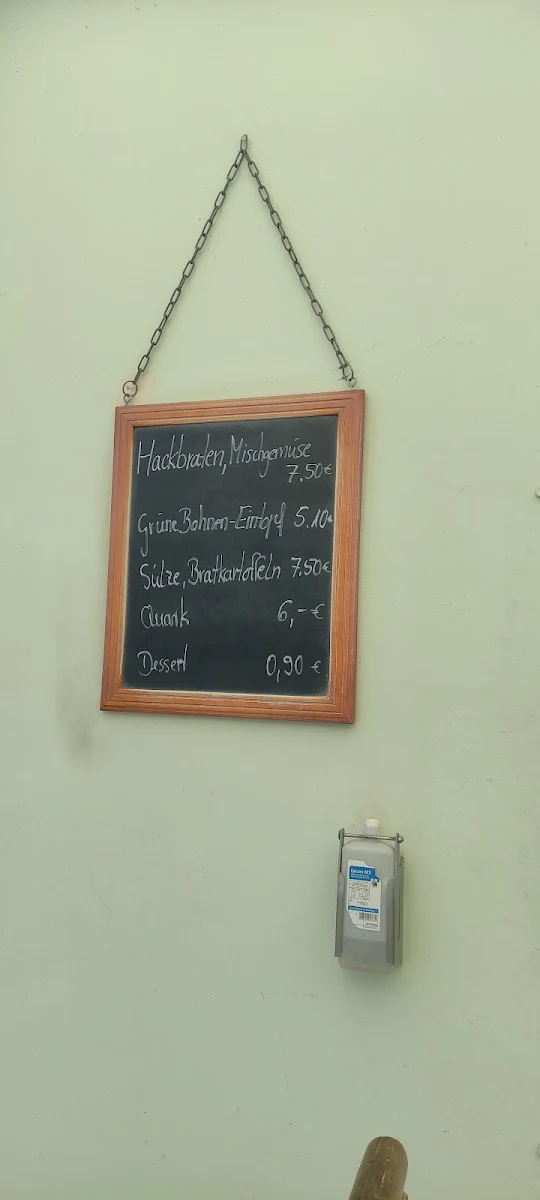 Hackbraten, Mischgemüse
7.50€
Grüne Bohnen-Eintopf 5.10€
Sülze, Bratkartoffeln 7.50€
Quark 6,-€
Dessert 0,90 €